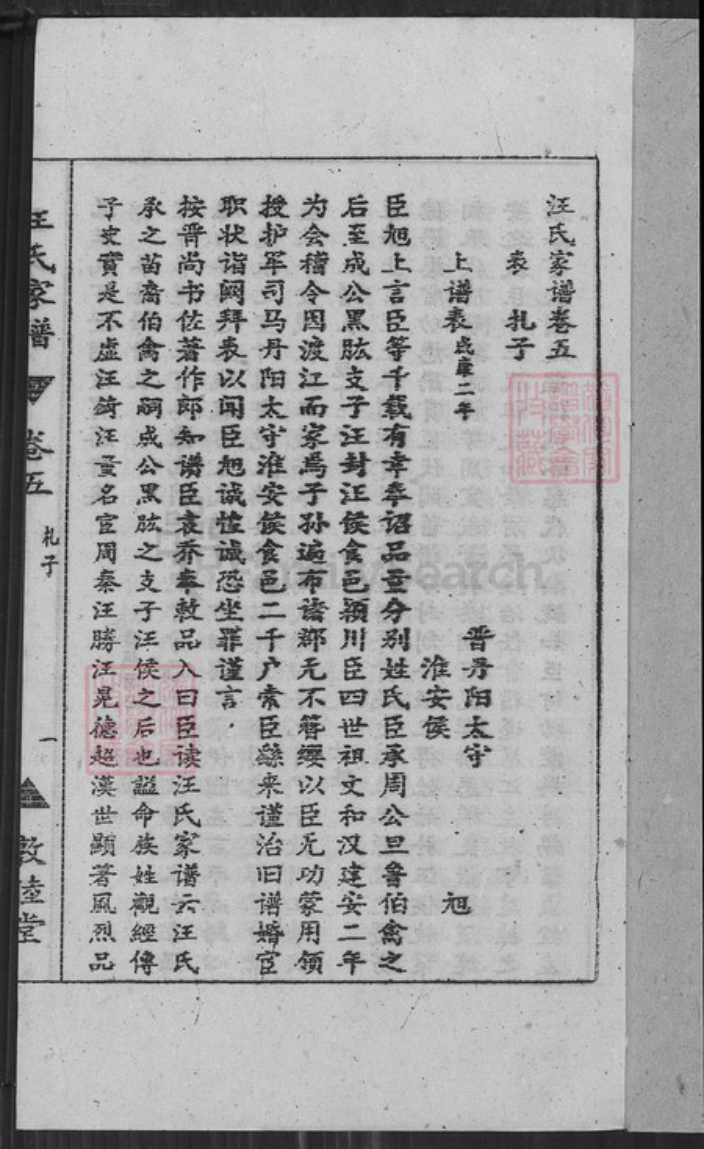 汪氏家谱卷五
表 扎子
上谱表咸康二年
晋丹阳太守
淮安侯 旭
臣旭上言臣等千载有幸奉诏品量分别姓氏臣承周公旦鲁伯禽之
后至成公黑肱支子汪封汪侯食邑颍川臣四世祖文和汉建安二年
为会稽令因渡江而家焉子孙遍布诸郡无不簪缨以臣无功蒙用领
授护军司马丹阳太守淮安侯食邑二千户索臣繇来谨治旧谱婚官
职状诣阙拜表以闻臣旭诚惶诚恐坐罪谨言
按晋尚书佐著作郎知谱臣袁乔奉敕品入曰臣读汪氏家谱云汪氏
承之苗裔伯禽之嗣成公黑肱之支子汪侯之后也谥命族姓觀經傳
子史實是不虚汪錡汪量名宦周秦汪勝汪晃德超漢世顯著風烈品
汪氏家譜 卷五 札子 一 敦睦堂